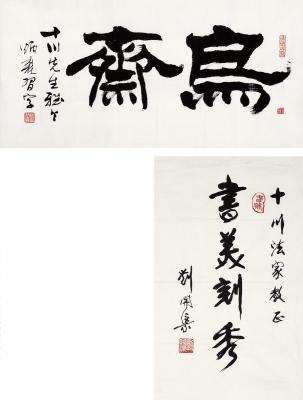 鳥齋
十川先生雅令
炳森習字
十川法家教正
書美刻秀
劉開渠